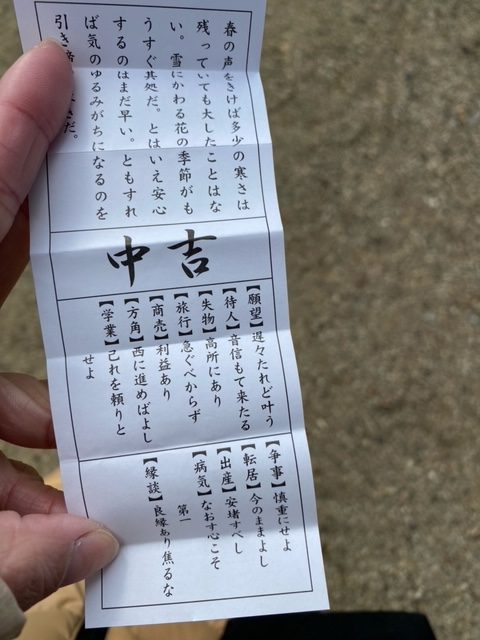 春の声をきけば多少の寒さは
残っていても大したことはな
い。雪にかわる花の季節がも
うすぐ其処だ。とはいえ安心
するのはまだ早い。ともすれ
ば気のゆるみがちになるのを
引き
だ。
中吉
【願望】遅々たれど叶う
【待人】音信もて来たる
【失物】高所にあり
【旅行】急ぐべからず
【商売】利益あり
【方角】西に進めばよし
【学業】己れを頼りと
せよ
【争事】慎重にせよ
【転居】今のままよし
【出産】安堵すべし
【病気】なおす心こそ
第一
【縁談】良縁あり焦るな